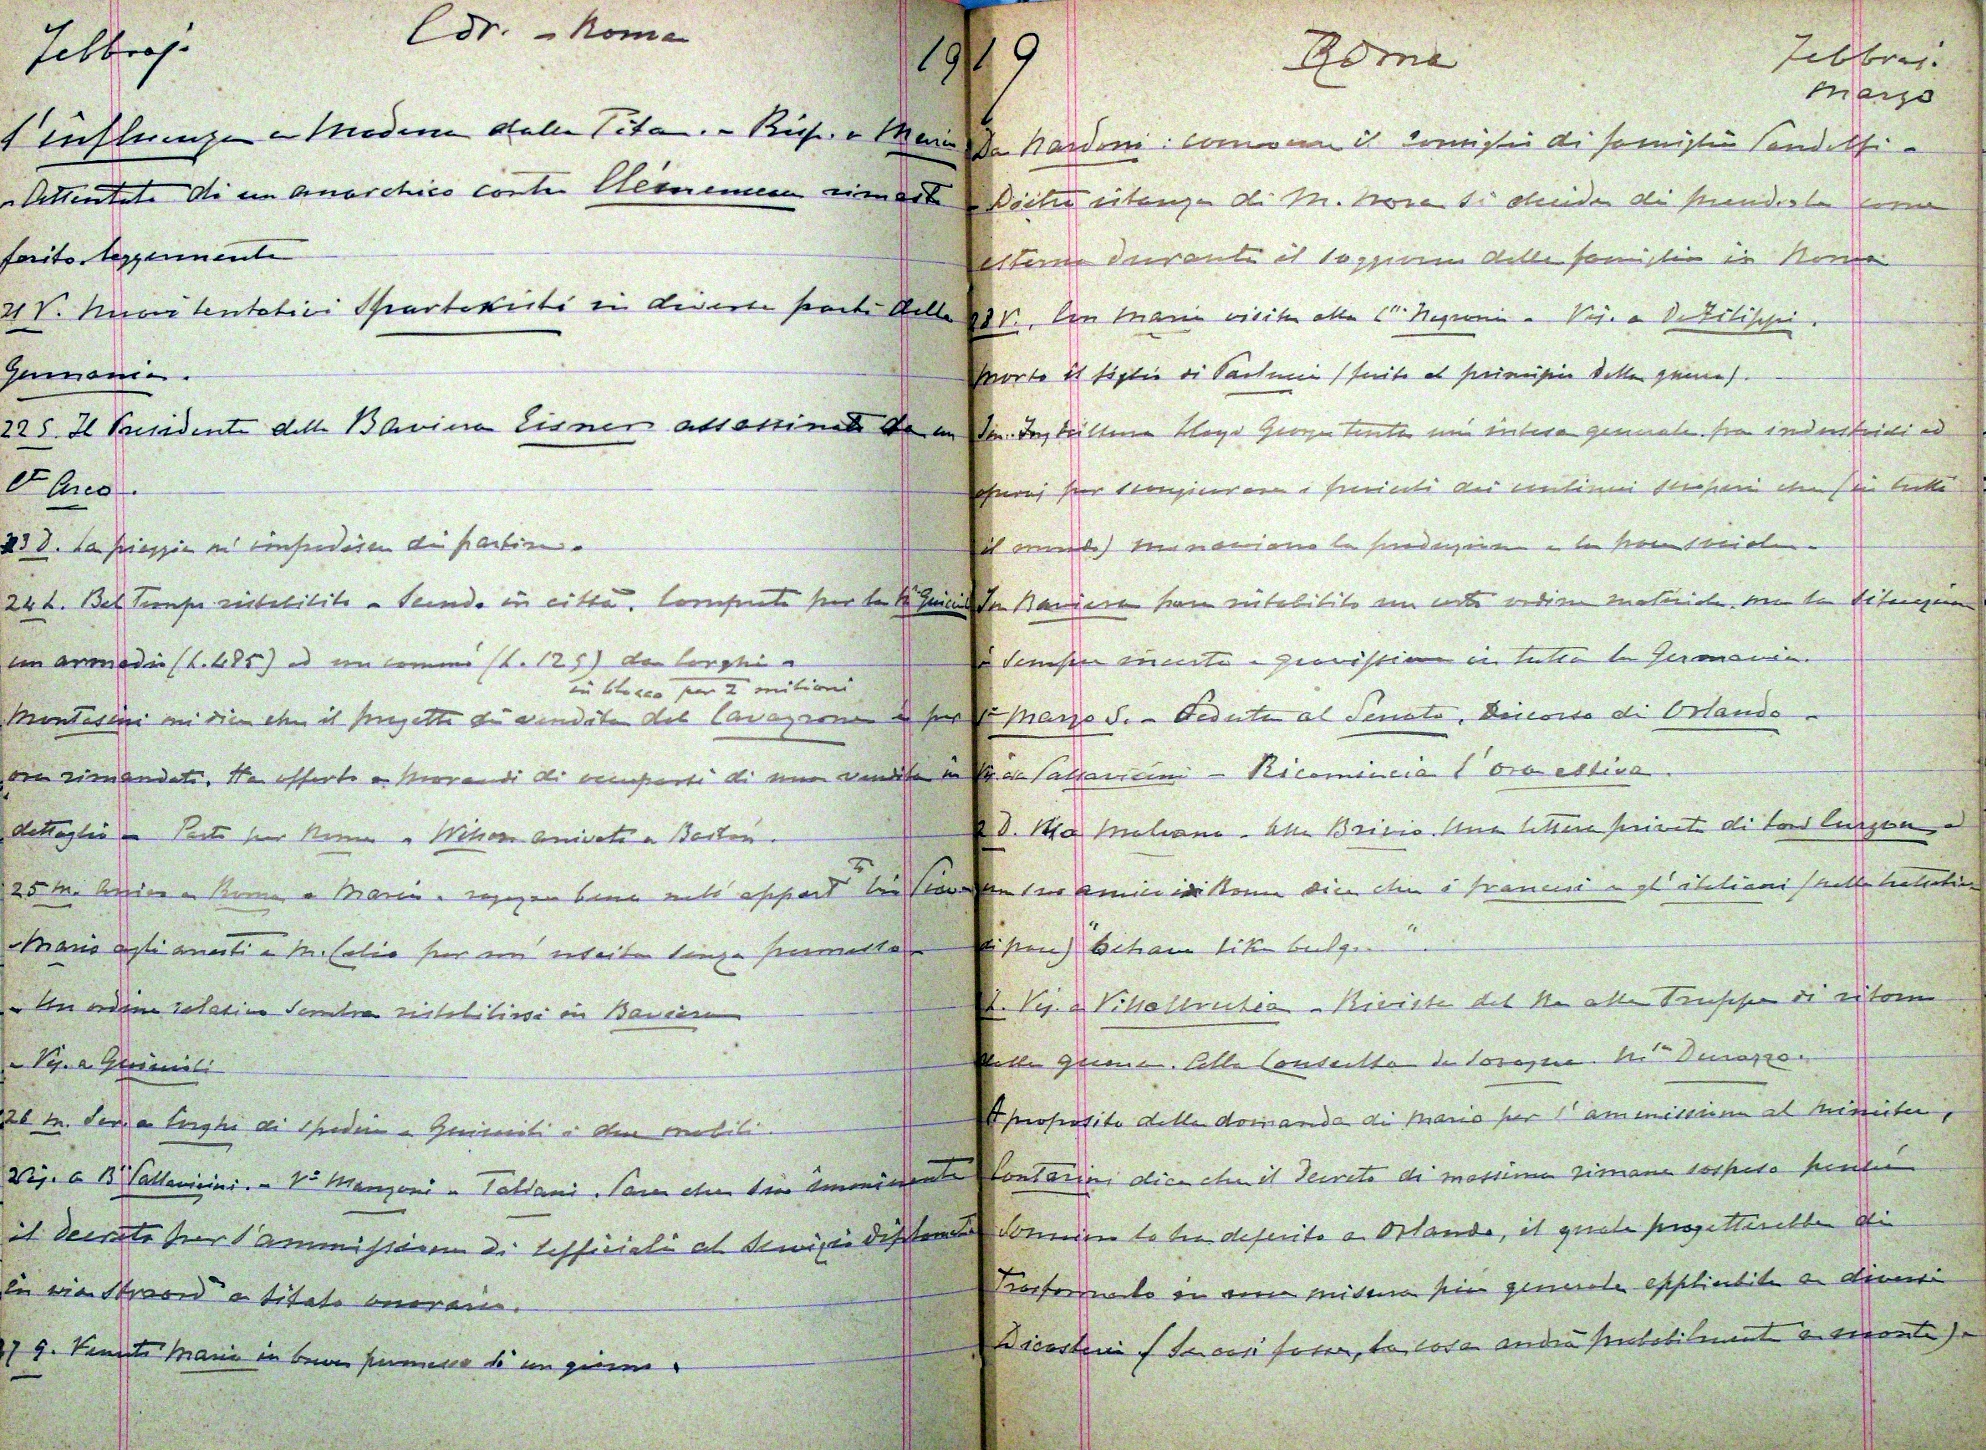 Febbraj. Cdr. - Roma 19
l'influenza a Modena dalla Titan. - Risp. a Maria
- Attentato di un anarchico contro Clémenceau rimasto
ferito leggermente
21 V. Nuovi tentativi Spartakisti in diverse parti della
Germania.
22 S. Il Presidente della Baviera Eisner assassinato da un
Cte Arco.
23 D. La pioggia m'impedisce di partire.
24 L. Bel tempo ristabilito - Scendo in città. Comprato per la
un armadio (L. 485) ed un commò (L. 125) da Corghi -
in blocco per 2 milioni
Montasini mi dice che il progetto di vendita del Cavazzone è per
ora rimandato. Ha offerto a Morandi di occuparsi di una vendita in
dettaglio - Parto per Roma - Wilson arrivato a Boston.
25 M. Arrivo a Roma - Maria
- Mario agli arresti a M. Celio per un'uscita senza permesso -
- Un ordine relativo sembra ristabilirsi in Baviera
- Vis. a
26 M. Scr. a Corghi di spedire a i due mobili.
Vis. a Pallavicini. - Manzoni - Taliani. Pare che sia imminente
il decreto per l'ammissione di ufficiali al servizio diplomatico
in via straord. a titolo onorario.
27 G. Venuto Mario in breve permesso di un giorno.
19 Roma Febbraj.
Marzo
Da Nardoni: consiglio di famiglia Pandolfi -
- Dietro istanza di M. Nora si decide di prenderla come
esterna durante il soggiorno della famiglia in Roma
28 V. Con Maria visita alla Negroni - Vis. a De Filippi.
Morto il figlio di Paolucci (ferito al principio della guerra).
In Inghilterra Lloyd George tenta un'intesa generale fra industriali ed
operaj per scongiurare i pericoli dei continui scioperi che (in tutto
il mondo) minacciano la produzione e la pace sociale -
In Baviera pare ristabilito un certo ordine materiale, ma la situazione
è sempre incerta e gravissima in tutta la Germania.
1° Marzo S. - Seduta al Senato. Discorso di Orlando -
Vis. da Pallavicini - Ricomincia l'ora estiva.
2 D. Brivio. Una lettera privata di Lord Curzon ad
un suo amico in Roma dice che i francesi e gl'italiani (nelle trattative
di pace) "behave like bulg.. "
L. Vis. a Villa Urrutia - Rivista del Re alle Truppe di ritorno
dalla guerra. Alla Consulta da Soragna. Durazzo.
A proposito della domanda di Mario per l'ammissione al ministero,
Contarini dice che il decreto di massima rimane sospeso perchè
Sonnino lo ha deferito a Orlando, il quale progetterebbe di
trasformarlo in una misura più generale applicabile a diversi
Dicasteri (Se così fosse, la cosa andrà probabilmente a monte) -